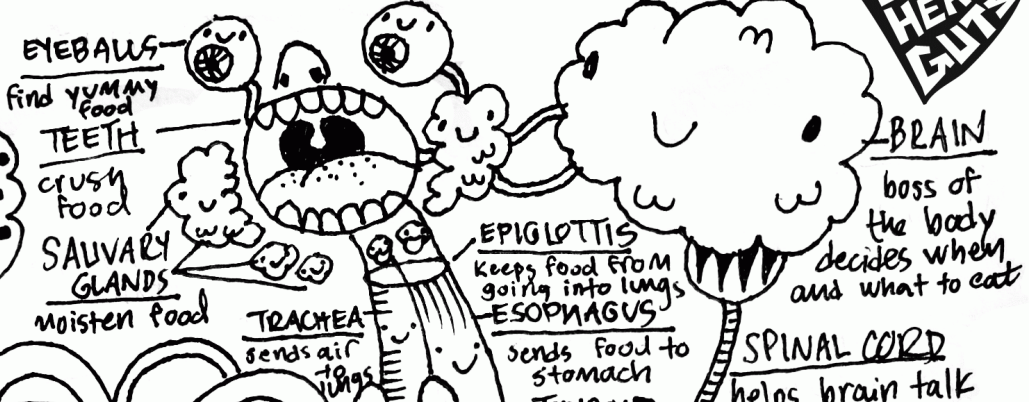 EYEBALLS
find YUMMY
food
TEETH
crush
food
SALIVARY
GLANDS
moisten food
TRACHEA
sends air
to
lungs
EPIGLOTTIS
keeps food from
going into lungs
ESOPHAGUS
sends food to
stomach
GUTS
BRAIN
boss of
the body
decides when
and what to eat
SPINAL CORD
helps brain talk